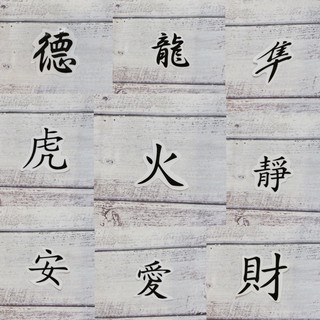 德 龍 隼
虎 火 靜
安 愛 財